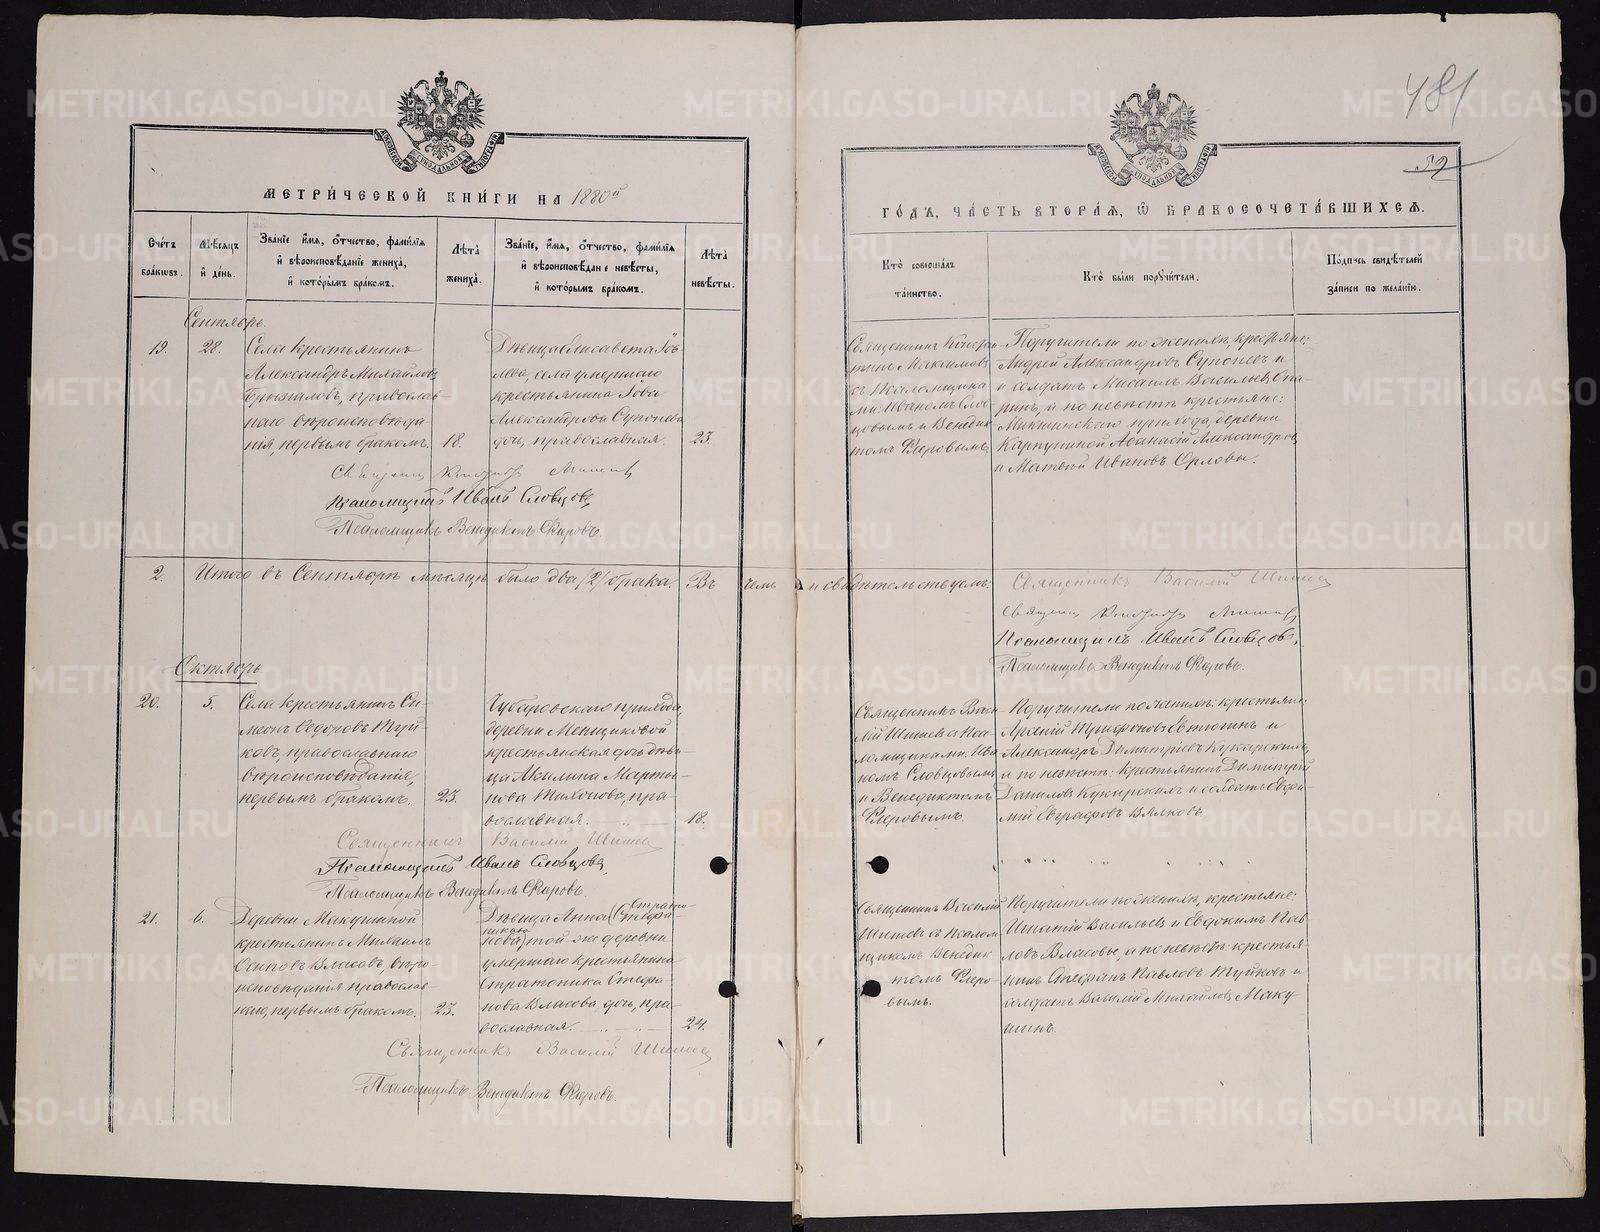 481
52
МЕТРИЧЕСКОЙ КНИГИ НА 1880й
ГОДЪ, ЧАСТЬ ВТОРАЯ, Ѡ БРАКОСОЧЕТАВШИХСЯ.
Счетъ браковъ.
Мѣсяцъ и день.
Званіе имя, отчество, фамилія и вѣроисповѣданіе жениха, и которымъ бракомъ.
Лѣта жениха.
Званіе, имя, отчество, фамилія и вѣроисповѣдан е невѣсты, и которымъ бракомъ.
Лѣта невѣсты.
Кто совершалъ таинство.
Кто были поручители.
Подпись свидѣтелей записи по желанію.
Сентябрь.
19.
28.
Села крестьянинъ
Александръ Михайловъ
Брызгаловъ, православ-
наго вѣроисповѣда
нія, первымъ бракомъ.
18.
Дѣвица Елисавета Іов
лева, села умершаго
крестьянина Іова
Александрова Супонева
дочь, православная.
23.
Священникъ
Максимовъ
съ Псаломщика
ми: Иваномъ Слов
цовымъ и Венедик
томъ Флеровымъ
Поручители по женихѣ, крестьяне:
Андрей Александровъ Супоневъ и
и солдатъ Михаилъ Васильевъ
и по невѣстѣ крестьяне:
прихода, деревни
Карпушиной Аѳанасій Александровъ
и Матвѣй Ивановъ Орловы.
Псаломщикъ Иванъ Словцовъ
Псаломщикъ Венедиктъ Флеровъ
2.
Итого въ Сентябрѣ мѣсяцѣ было два /2/ брака. Въ чемъ и свидѣтельствуемъ:
Священникъ Василій Шишевъ
Псаломщикъ Иванъ Словцовъ,
Псаломщикъ Венедиктъ Флеровъ.
Октябрь
20.
5.
Села крестьянинъ Си-
меонъ Ѳедоровъ Туй-
ковъ, православнаго
вѣроисповѣданія,
первымъ бракомъ.
23.
Чубаровскаго прихода,
деревни Менщиковой
крестьянская дочь дѣви-
ца Акилина Марты-
нова Тихонова, пра-
вославная.
18.
Священникъ Васи-
лій Шишевъ съ Пса-
ломщиками: Ива
номъ Словцовымъ
и Венедиктомъ
Флеровымъ.
Поручители по женихѣ: крестьяне
Арсеній Трифоновъ Евтюгинъ и
Александръ Димитріевъ Кукарскихъ,
а по невѣстѣ: крестьянинъ Димитрій
Даниловъ Кукарскихъ и солдатъ Евѳи-
мій Евграфовъ Вялковъ.
Священникъ Василій Шишевъ
Псаломщикъ Иванъ Словцовъ,
Псаломщикъ Венедиктъ Флеровъ
21.
6.
Деревни Макушиной
крестьянинъ Михаилъ
Осиповъ Власовъ, вѣро-
исповѣданія православ-
наго, первымъ бракомъ.
23.
Дѣвица Анна (Стефа-
Страто-
никова
нова) той же деревни
умершаго крестьянина
Стратоника Стефа-
нова Власова дочь, пра-
вославная.
24.
Священникъ Василій
Шишевъ съ Псалом
щикомъ Венедик
томъ Флеро
вымъ.
Поручители по женихѣ, крестьяне:
Игнатій Васильевъ и Евдокимъ Пав-
ловъ Власовы, а по невѣстѣ: крестья-
нинъ Стефанъ Павловъ Туйковъ и
солдатъ Василій Михайловъ Маку-
шинъ.
Священникъ Василій Шишевъ
Псаломщикъ Венедиктъ Флеровъ.
METRIKI.GASO-URAL.RU